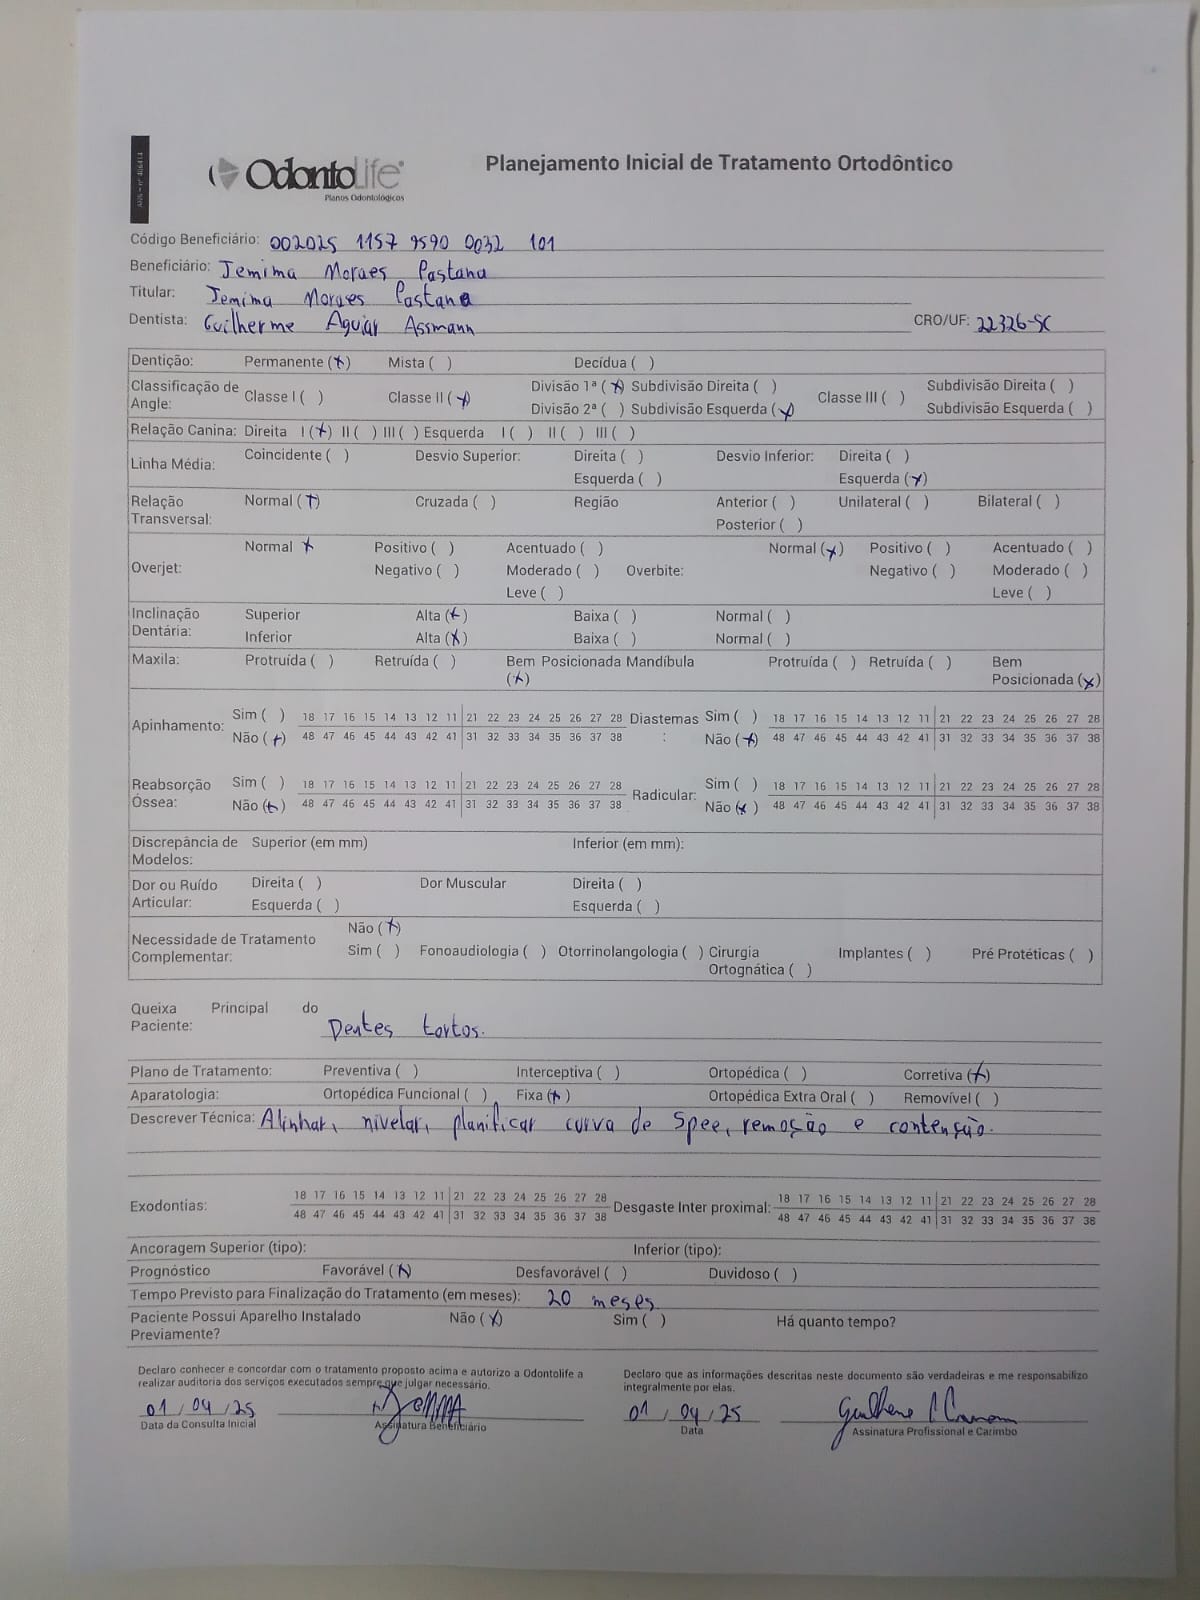 ANS - nº 406414
OdontoLife®
Planos Odontológicos
Planejamento Inicial de Tratamento Ortodôntico
Código Beneficiário: 002025 1157 9590 0032 101
Beneficiário: Jemima Moraes Pastana
Titular: Jemima Moraes Pastana
Dentista: Guilherme Aguiar Assmann CRO/UF: 22326-SC
Dentição: Permanente (x) Mista ( ) Decídua ( )
Classificação de Angle: Classe I ( ) Classe II (x) Divisão 1ª (x) Subdivisão Direita ( ) Classe III ( ) Subdivisão Direita ( )
Divisão 2ª ( ) Subdivisão Esquerda (x) Subdivisão Esquerda ( )
Relação Canina: Direita I (x) II ( ) III ( ) Esquerda I ( ) II ( ) III ( )
Linha Média: Coincidente ( ) Desvio Superior: Direita ( ) Desvio Inferior: Direita ( )
Esquerda ( ) Esquerda (x)
Relação Transversal: Normal (x) Cruzada ( ) Região Anterior ( ) Unilateral ( ) Bilateral ( )
Posterior ( )
Normal x Positivo ( ) Acentuado ( ) Normal (x) Positivo ( ) Acentuado ( )
Overjet: Negativo ( ) Moderado ( ) Overbite: Negativo ( ) Moderado ( )
Leve ( ) Leve ( )
Inclinação Dentária: Superior Alta (x) Baixa ( ) Normal ( )
Inferior Alta (x) Baixa ( ) Normal ( )
Maxila: Protruída ( ) Retruída ( ) Bem Posicionada (x) Mandíbula Protruída ( ) Retruída ( ) Bem Posicionada (x)
Apinhamento: Sim ( ) 18 17 16 15 14 13 12 11 21 22 23 24 25 26 27 28 Diastemas: Sim ( ) 18 17 16 15 14 13 12 11 21 22 23 24 25 26 27 28
Não (x) 48 47 46 45 44 43 42 41 31 32 33 34 35 36 37 38 Não (x) 48 47 46 45 44 43 42 41 31 32 33 34 35 36 37 38
Reabsorção Óssea: Sim ( ) 18 17 16 15 14 13 12 11 21 22 23 24 25 26 27 28 Radicular: Sim ( ) 18 17 16 15 14 13 12 11 21 22 23 24 25 26 27 28
Não (x) 48 47 46 45 44 43 42 41 31 32 33 34 35 36 37 38 Não (x) 48 47 46 45 44 43 42 41 31 32 33 34 35 36 37 38
Discrepância de Modelos: Superior (em mm) Inferior (em mm):
Dor ou Ruído Articular: Direita ( ) Dor Muscular Direita ( )
Esquerda ( ) Esquerda ( )
Não (x)
Necessidade de Tratamento Complementar: Sim ( ) Fonoaudiologia ( ) Otorrinolangologia ( ) Cirurgia Ortognática ( ) Implantes ( ) Pré Protéticas ( )
Queixa Principal do Paciente: Dentes tortos.
Plano de Tratamento: Preventiva ( ) Interceptiva ( ) Ortopédica ( ) Corretiva (x)
Aparatologia: Ortopédica Funcional ( ) Fixa (x) Ortopédica Extra Oral ( ) Removível ( )
Descrever Técnica: Alinhar, nivelar, planificar curva de Spee, remoção e contenção.
Exodontias: 18 17 16 15 14 13 12 11 21 22 23 24 25 26 27 28 Desgaste Inter proximal: 18 17 16 15 14 13 12 11 21 22 23 24 25 26 27 28
48 47 46 45 44 43 42 41 31 32 33 34 35 36 37 38 48 47 46 45 44 43 42 41 31 32 33 34 35 36 37 38
Ancoragem Superior (tipo): Inferior (tipo):
Prognóstico Favorável (x) Desfavorável ( ) Duvidoso ( )
Tempo Previsto para Finalização do Tratamento (em meses): 20 meses
Paciente Possui Aparelho Instalado Previamente? Não (x) Sim ( ) Há quanto tempo?
Declaro conhecer e concordar com o tratamento proposto acima e autorizo a Odontolife a
realizar auditoria dos serviços executados sempre que julgar necessário.
Declaro que as informações descritas neste documento são verdadeiras e me responsabilizo
integralmente por elas.
01 / 04 / 25
Data da Consulta Inicial
Assinatura Beneficiário
01 / 04 / 25
Data
Assinatura Profissional e Carimbo